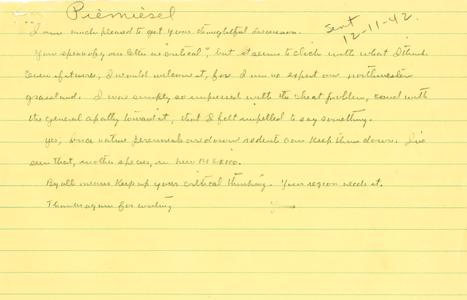 Piemeisel
Sent
12-11-42.
I am much pleased to get your thoughtful discussion.
You speak of your letter as "critical", but it seems to click with what I think.
Even if it were, I would welcome it, for I am no expert on northwestern
grassland. I was simply so impressed with the cheat problem, and with
the general apathy toward it, that I felt impelled to say something.
Yes, once native perennials are down rodents can keep them down. I've
seen that, in other species, in New Mexico.
By all means keep up your critical thinking. Your region needs it.
Thanks again for writing
Yours